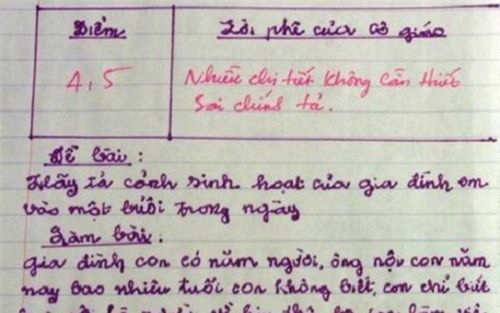 Điểm
Lời phê của cô giáo
4,5
Nhiều chi tiết không cần thiết
Sai chính tả.
Đề bài :
Hãy tả cảnh sinh hoạt của gia đình em
vào một buổi trong ngày
Làm bài :
Gia đình con có năm người, ông nội con năm
nay bao nhiêu tuổi con không biết, con chỉ biết